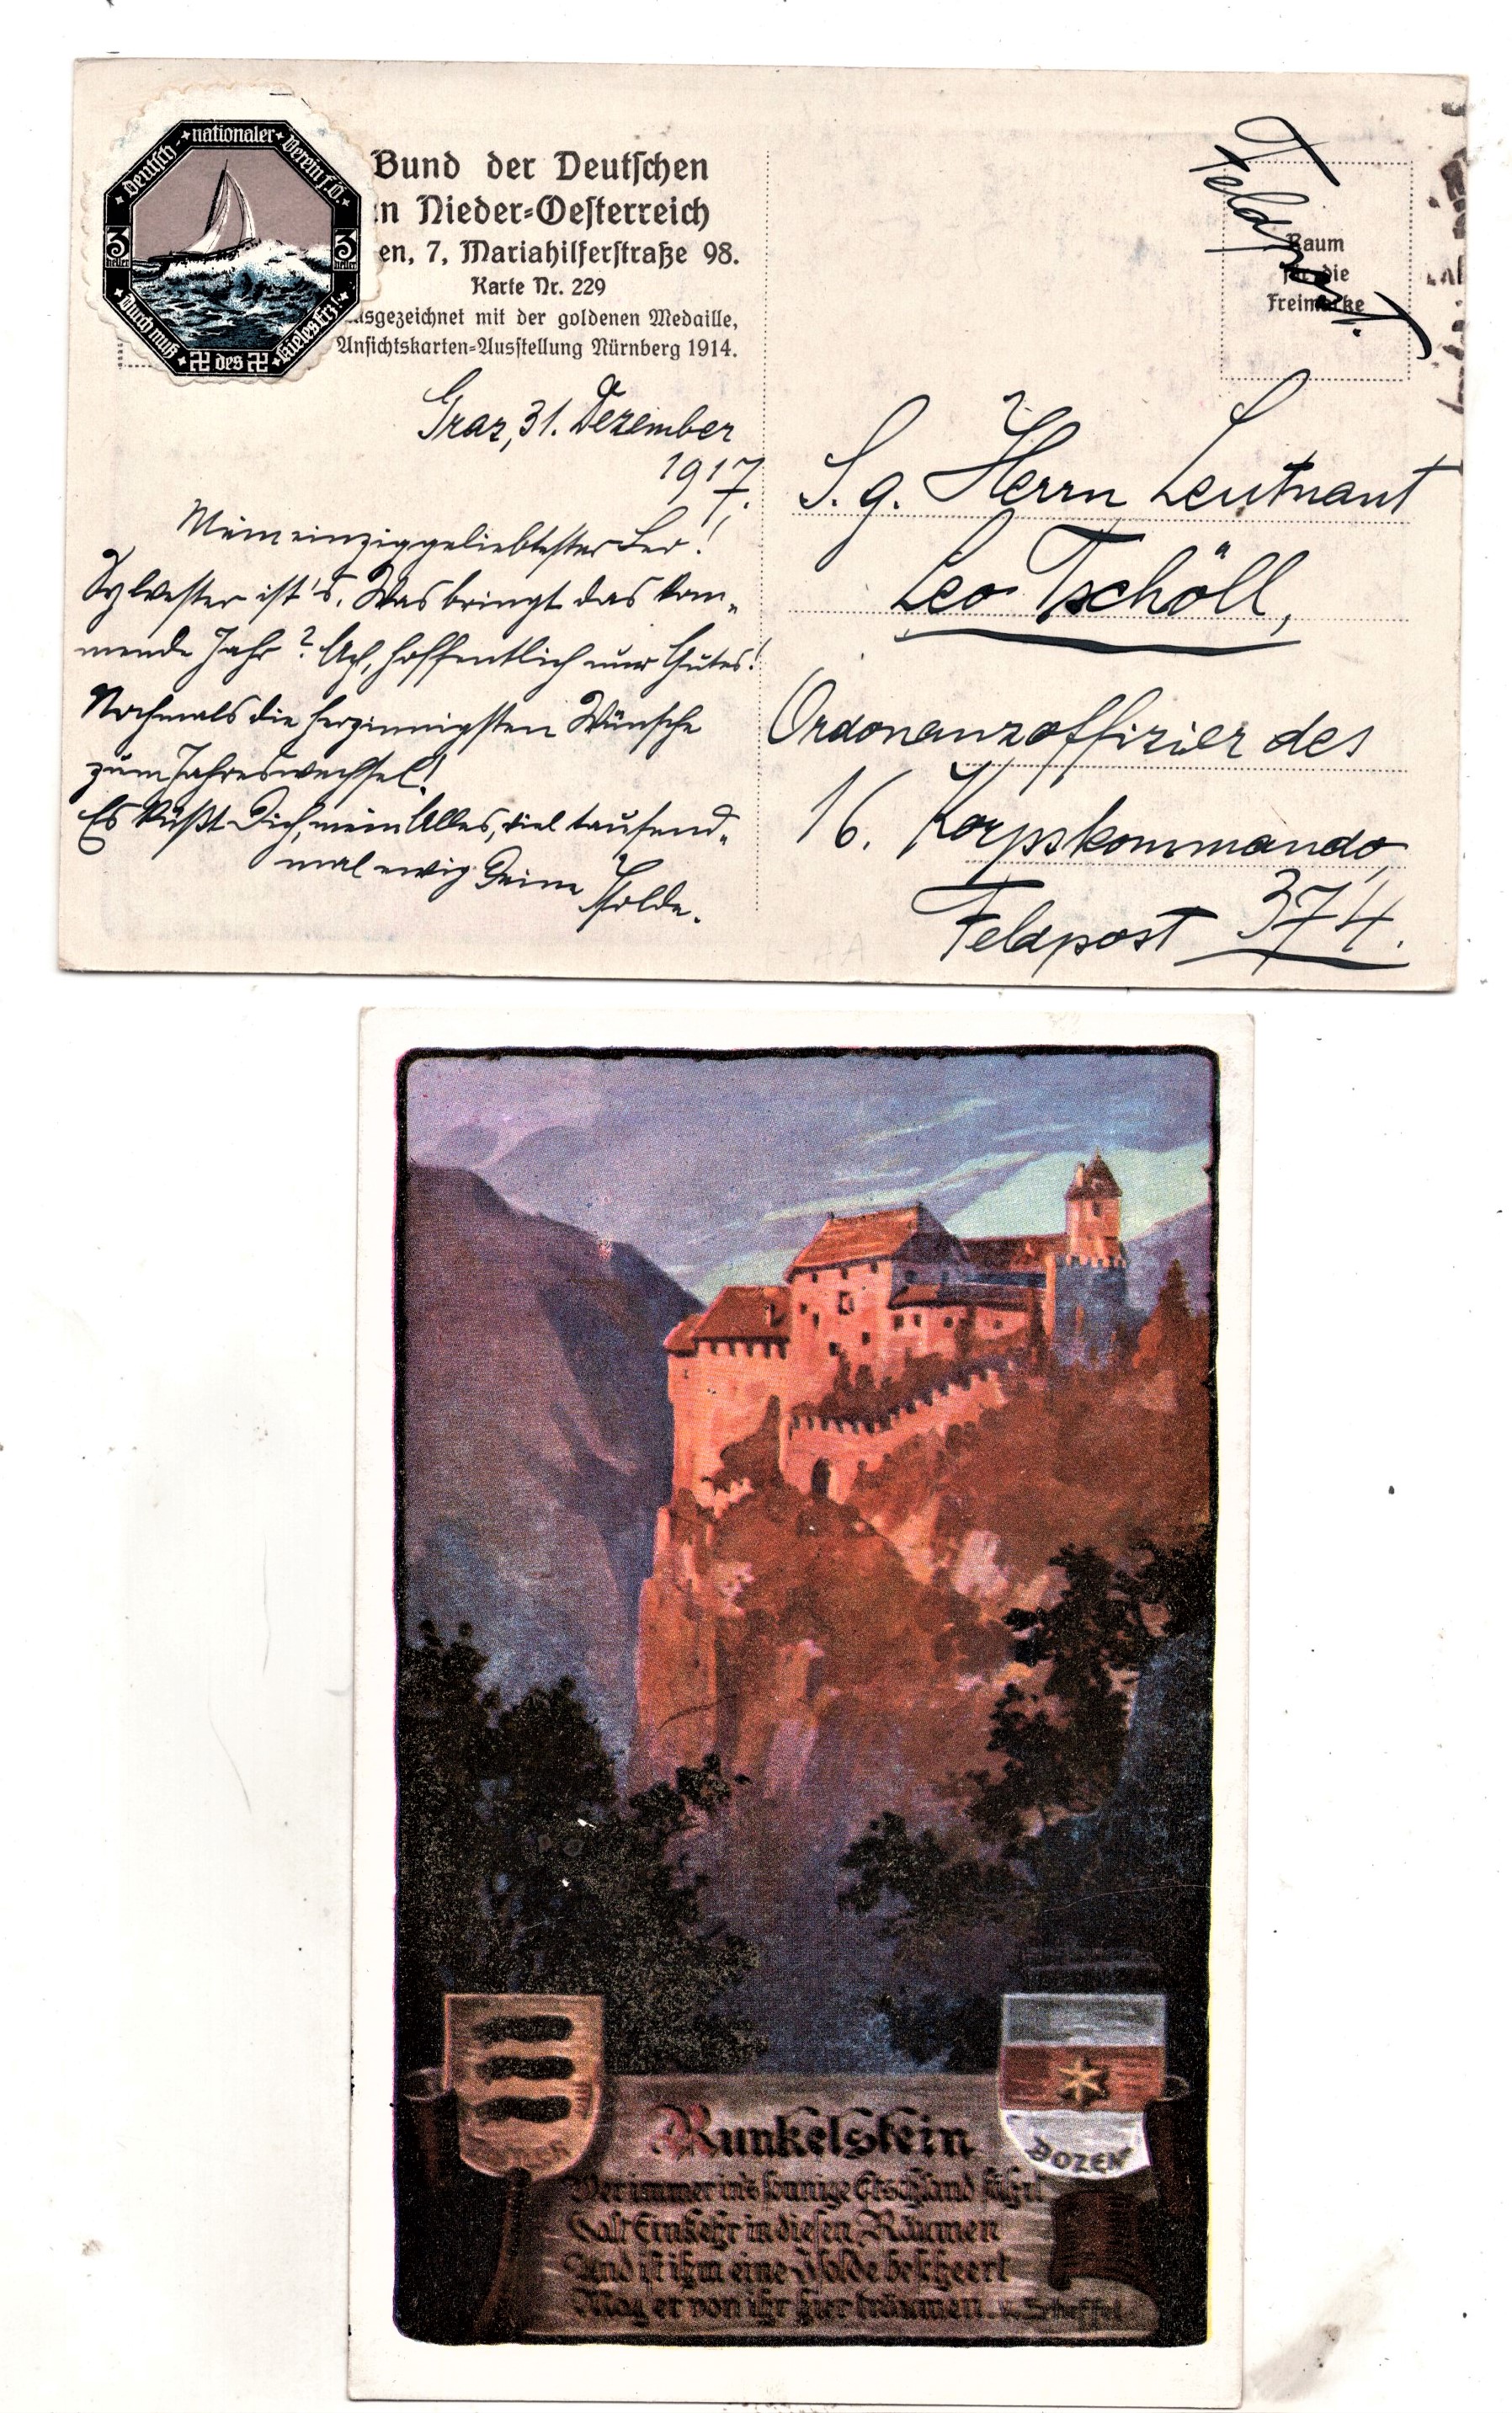 Deutsch-nationaler Verein f. Ö.
3 heller
3 heller
Durch muß des Kieles Erz!
Bund der Deutschen
in Nieder=Oesterreich
en, 7, Mariahilferstraße 98.
Karte Nr. 229
usgezeichnet mit der goldenen Medaille,
Ansichtskarten=Ausstellung Nürnberg 1914.
Graz, 31. Dezember
1917.
Mein einziggeliebtester Leo!
Sylvester ist's. Was bringt das kom„
mende Jahr? Ach, hoffentlich nur Gutes!
Nochmals die herzinnigsten Wünsche
zum Jahreswechsel!
Es küßt Dich, mein Alles, viel tausend„
mal ewig Deine Isolde.
Feldpost.
Raum
für die
Freimarke
S. g. Herrn Leutnant
Leo Tschöll,
Ordonanzoffizier des
16. Korpskommando,
Feldpost 374.
BOZEN
Runkelstein
Wer immer in's sonnige Etschland fährt
Halt Einkehr in diesen Räumen
Und ist ihm eine Isolde bescheert
Mag er von ihr hier träumen. v. Scheffel